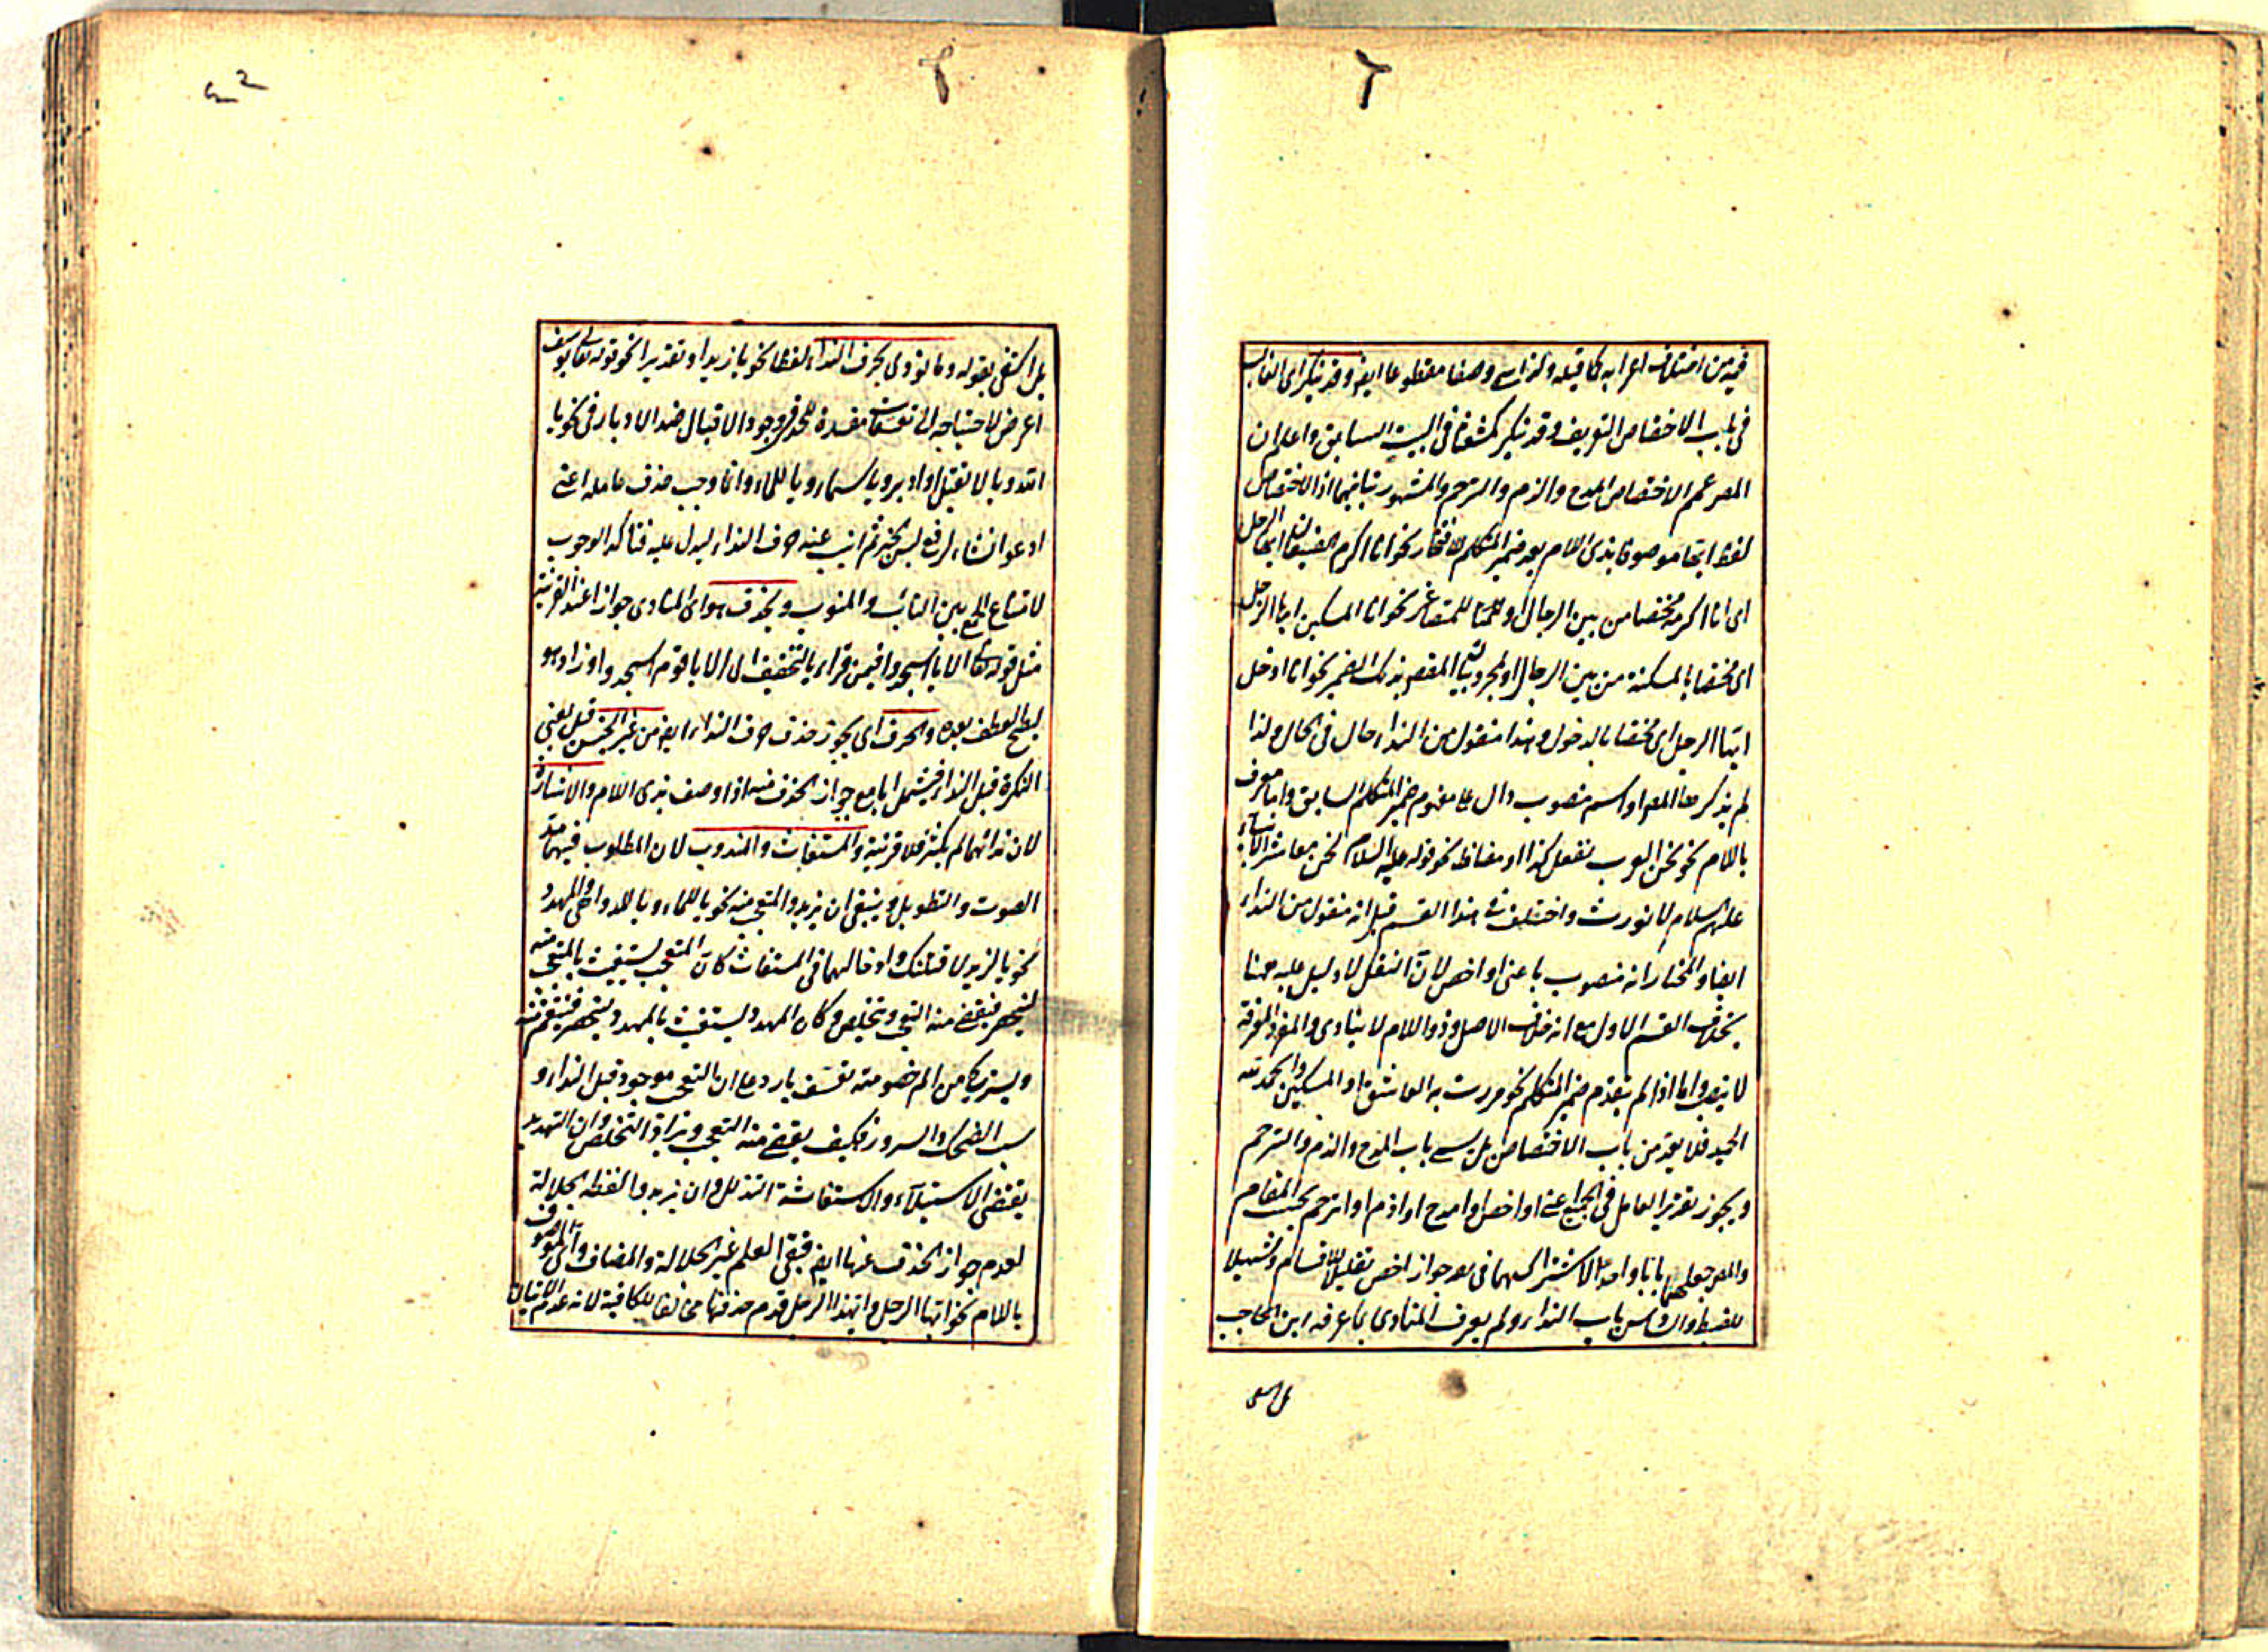 فيه من اختلاف اعرابه كما قيله ولذا سمى وصفا مقطوعا ايضا وقد ينكر اى الغالب
فى باب الاختصاص التعريف وقد ينكر كشعثا فى البيت السابق واعلم ان
المص عمم الاختصاص المدح والذم والترحم والمشهور تباينهما اذ الاختصاص
لفظ ايها موصوفا بذى اللام بعد ضمير المتكلم للافتخار نحو انا اكرم الضيفان ايها الرجل
اى انا اكرمه مختصا من بين الرجال او للتصاغر نحو انا المسكين ايها الرجل
اى مختصا بالمسكنة من بين الرجال او لمجرد بيان المقص بذلك الضمير نحو انا ادخل
ايها الرجل اى مختصا بالدخول وهذا منقول من النداء حال فى الحال ولذا
لم يذكر معه المص او اسم منصوب دال على مفهوم ضمير المتكلم السابق واما معرف
باللام نحو نحن العرب نفعل كذا او مضاف نحو قوله عليه السلام نحن معاشر الانبياء
عليهم السلام لا نورث واختلف فى هذا القسم قيل انه منقول من النداء
ايضا والمختار انه منصوب باعنى او اخص لان النقل لا دليل عليه ههنا
بخلاف القسم الاول مع انه خلاف الاصل وذو اللام لا ينادى والمفرد المعرفة
لا ينصب واما اذا لم يتقدم ضمير المتكلم نحو مررت به الفاسق او المسكين والحمد لله
الحميد فلا يعد من باب الاختصاص بل يسمى باب المدح والذم والترحم
ويجوز تقدير العامل فى الجميع اعنى او اخص او امدح او اذم او اترحم بحسب المقام
والمص جعلهما بابا واحدا لاشتراكهما فى جواز اخص تقليلا للاقسام وتسهيلا
للضبط والخامس باب النداء ولم يعرف المنادى بما عرفه ابن الحاجب
بل اكتفى بقوله وما نودى بحرف النداء لفظا نحو يا زيد او تقديرا نحو قوله تعالى يوسف
اعرض لاحتياجه الى تعسفات مفسدة للحد فى وجود الاقبال ضد الادبار فى نحو يا
الله ويا لا تقبل او ادبر ويا سماء ويا للماء وانما وجب حذف عامله اعنى
ادعو انشاء لرفع لبس الخبر ثم انيب عنه حرف النداء ليدل عليه فتاكد الوجوب
لامتناع الجمع بين النائب والمنوب ويحذف هو اى المنادى جوازا عند القرينة
مثل قوله تعالى الا يا اسجدوا فيمن قراء بالتخفيف اى الا يا قوم اسجدوا وزاد هو
ليصح العطف بعده والحرف اى يجوز حذف حرف النداء ايضا من غير الجنس قبل يعنى
النكرة قبل النداء فيشمل ايا مع جواز الحذف منه اذا وصف بذى اللام والاشارة
لان ندائهما لم يكثر فلا قرينة والمستغاث والمندوب لان المطلوب فيهما مد
الصوت والتطويل وينبغى ان يزيد والمتعجب منه نحو يا للماء ويا للدواهى والمهدد
نحو يا لزيد لاقتلنك وادخالهما فى المستغاث كان المتعجب يستغيث بالمتعجب منه
ليحضر فيقضى منه التعجب ويتخلص وكان المهدد يستغيث بالمهدد ليحضر فينتقم منه
ويستريح من الم خصومته تعسف بارد على ان التعجب موجود قبل النداء و
سبب الضحك والسرور فكيف يقضى منه التعجب ويراد التخلص وان التهديد
يقتضى الاستيلاء والاستغاثة التذلل وان يزيد والفظة الجلالة
لعدم جواز الحذف عنها ايضا فبقى العلم غير الجلالة والمضاف واى الموصوف
باللام نحو ايها الرجل وايهذا الرجل قدم حذفها مخالفا للكافية لانه عدم الاتيان